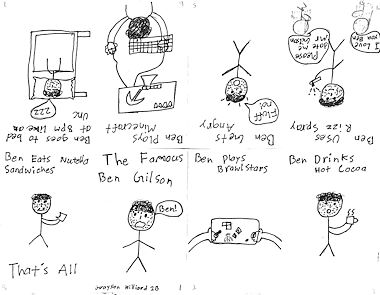 Ben goes to bed
at 8pm like an
Unc
ZZZ
Ben Plays
Minecraft
Ben Gets
Angry
Ben Uses
Rizz Spray
Please
Date me
I Love
you Ben
Ben Eats Nutella
Sandwiches
The Famous
Ben Gilson
Ben!
Ben Plays
Brawlstars
Ben Drinks
Hot Cocoa
That's All